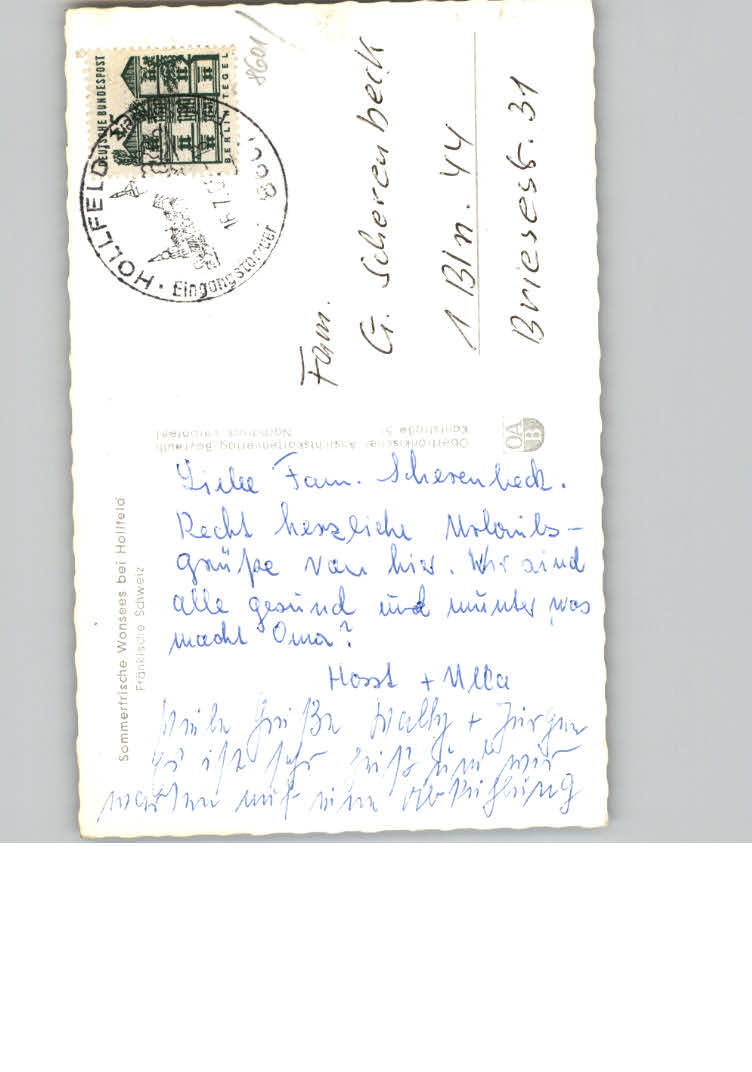 DEUTSCHE BUNDESPOST
BERLIN TEGEL
8601
HOLLFELD
8601
16.7.
Eingangstor
Fam.
G. Scherenbeck
1 Bln. 44
Briesestr. 31
Oberfränkischer Ansichtskartenverlag Bayreuth
Kantstraße
Nachdruck verboten!
OA
B
Sommerfrische Wonsees bei Hollfeld
Fränkische Schweiz
Liebe Fam. Scherenbeck.
Recht herzliche Urlaubs-
grüße von hier. Wir sind
alle gesund und munter, was
macht Oma?
Horst + Ulla
Viele Grüße Wally + Jürgen
Es ist sehr heiß und wir
warten auf eine Abkühlung